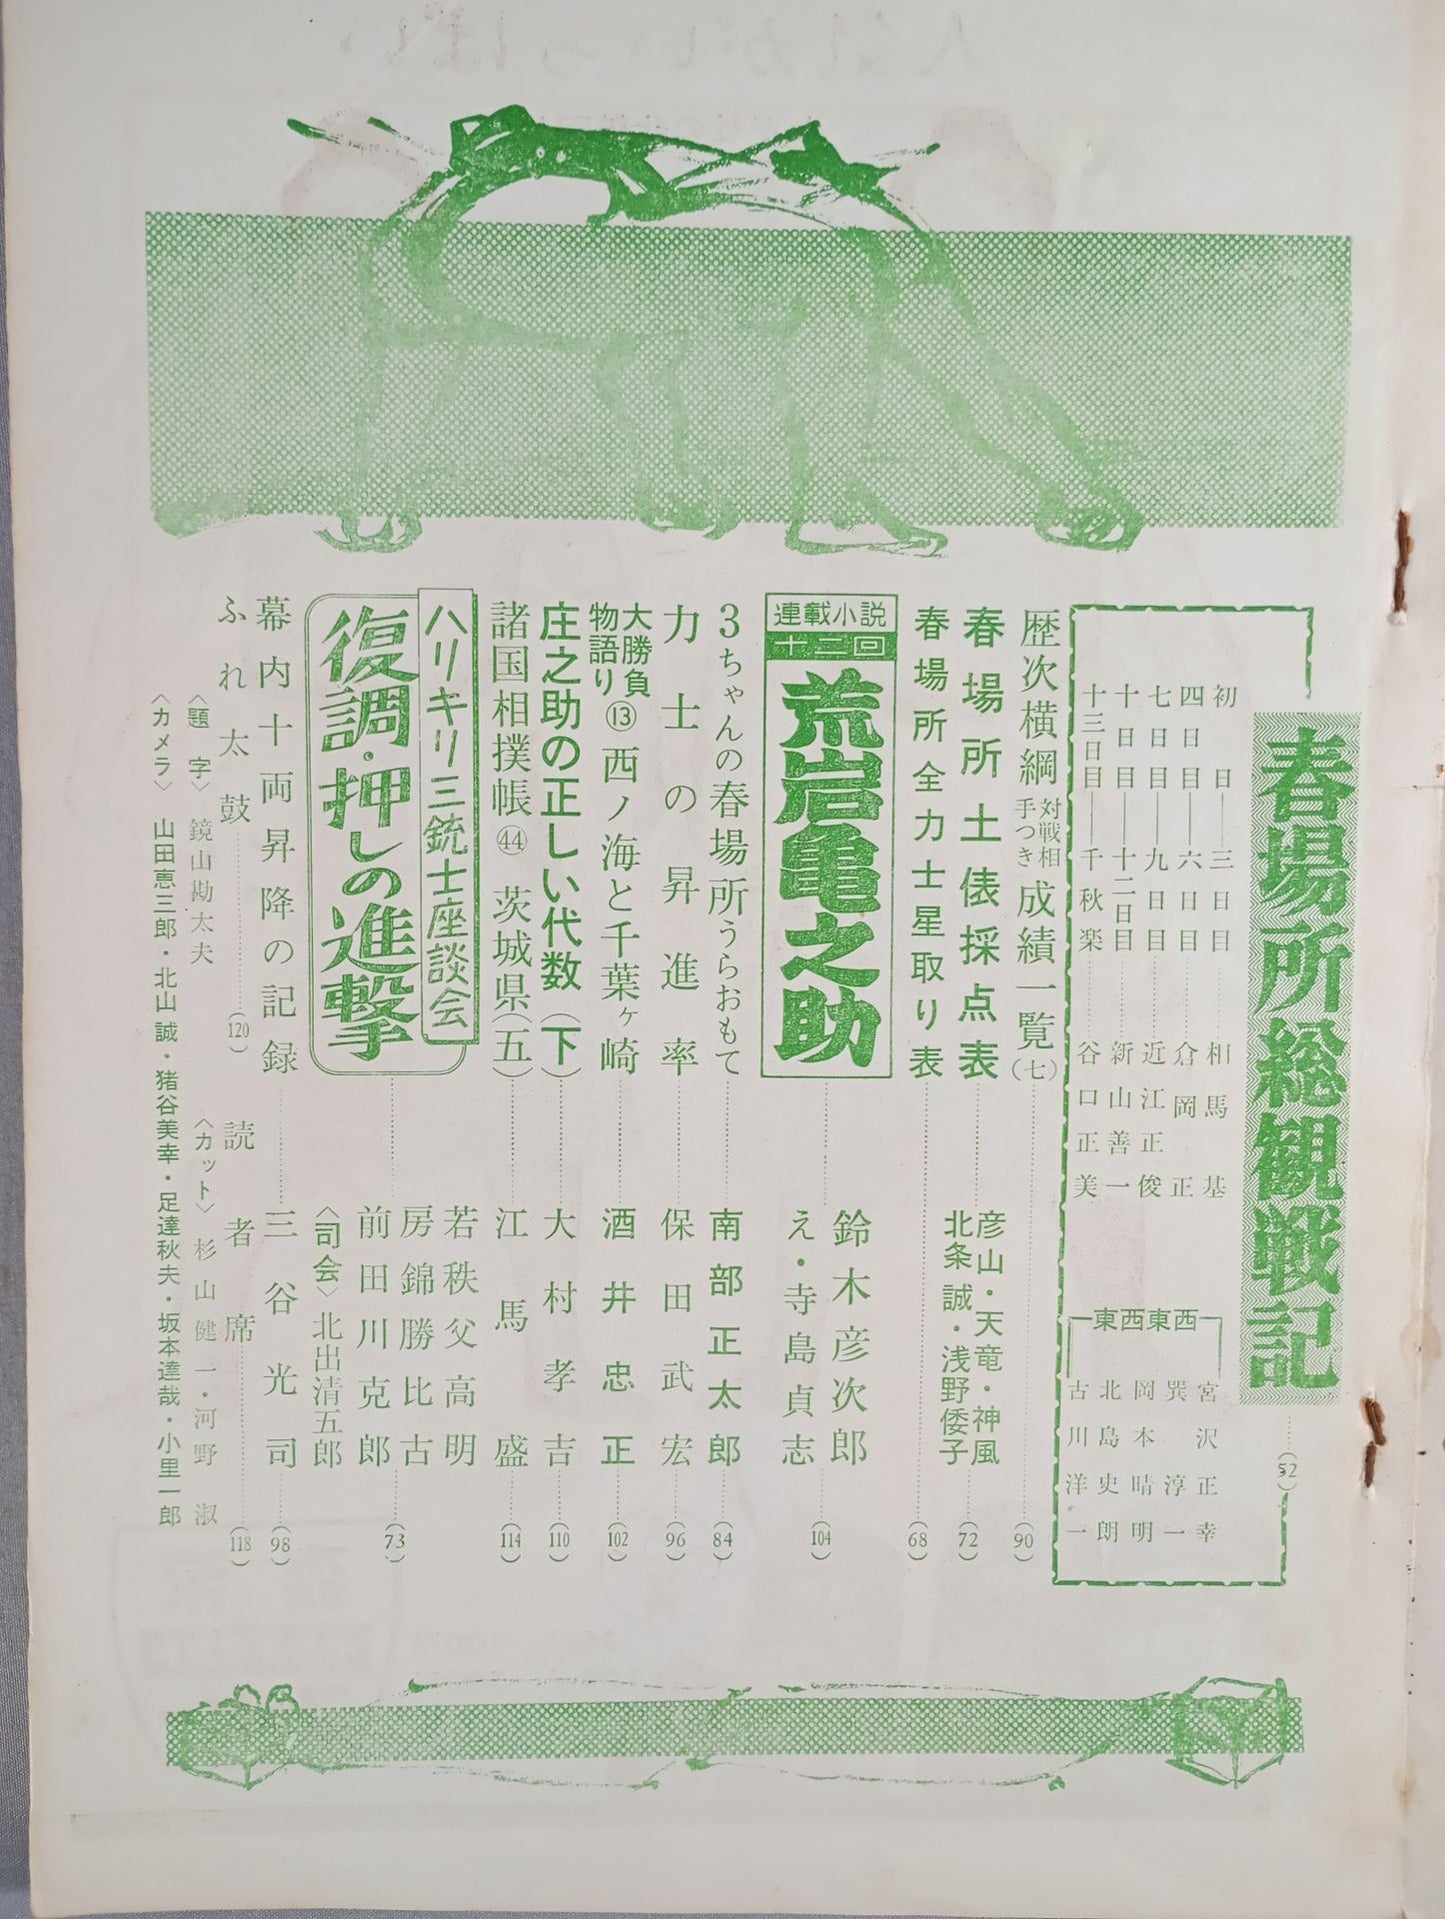 春場所総観戦記……(52)
初日――三日目……相馬基
四日目――六日目……倉岡正
七日目――九日目……近江正俊
十日目――十二日目……新山善一
十三日目――千秋楽……谷口正美
東西東西
宮沢正幸
巽淳一
岡本晴明
北島史朗
古川洋一
歴次横綱対戦相手つき成績一覧(七)……(90)
春場所土俵採点表……彦山・天竜・神風 北条誠・浅野倭子……(72)
春場所全力士星取り表……(68)
連載小説
十二回
荒岩亀之助……鈴木彦次郎 え・寺島貞志……(104)
3ちゃんの春場所うらおもて……南部正太郎……(84)
力士の昇進率……保田武宏……(96)
大勝負物語り⑬西ノ海と千葉ヶ崎……酒井忠正……(102)
庄之助の正しい代数(下)……大村孝吉……(110)
諸国相撲帳㊹茨城県(五)……江馬盛……(114)
ハリキリ三銃士座談会
復調・押しの進撃……若秩父高明 房錦勝比古 前田川克郎 〈司会〉北出清五郎……(73)
幕内十両昇降の記録……三谷光司……(98)
ふれ太鼓……(120)
読者席……(118)
〈題字〉鏡山勘太夫
〈カット〉杉山健一・河野淑
〈カメラ〉山田恵三郎・北山誠・猪谷美幸・足達秋夫・坂本達哉・小里一郎